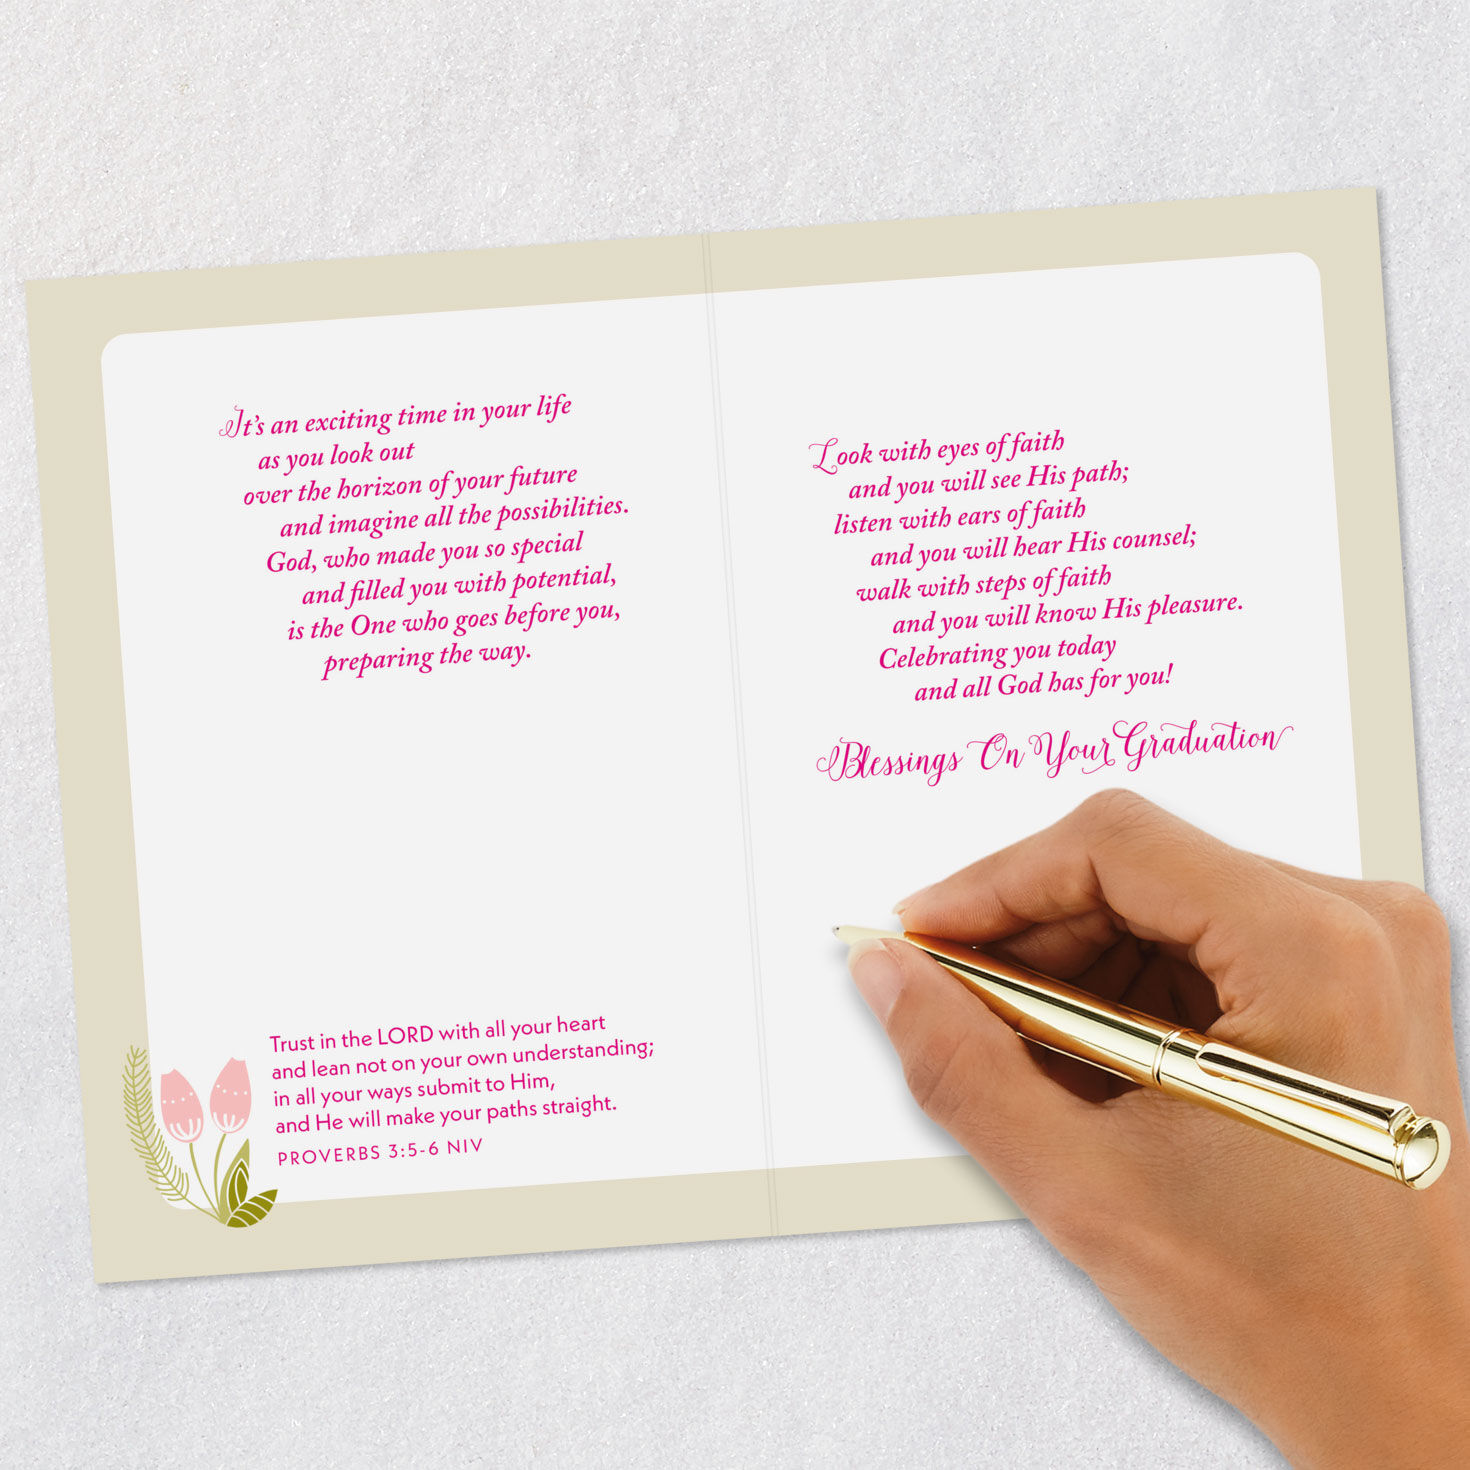 It's an exciting time in your life
as you look out
over the horizon of your future
and imagine all the possibilities.
God, who made you so special
and filled you with potential,
is the One who goes before you,
preparing the way.
Trust in the LORD with all your heart
and lean not on your own understanding;
in all your ways submit to Him,
and He will make your paths straight.
PROVERBS 3:5-6 NIV
Look with eyes of faith
and you will see His path;
listen with ears of faith
and you will hear His counsel;
walk with steps of faith
and you will know His pleasure.
Celebrating you today
and all God has for you!
Blessings On Your Graduation